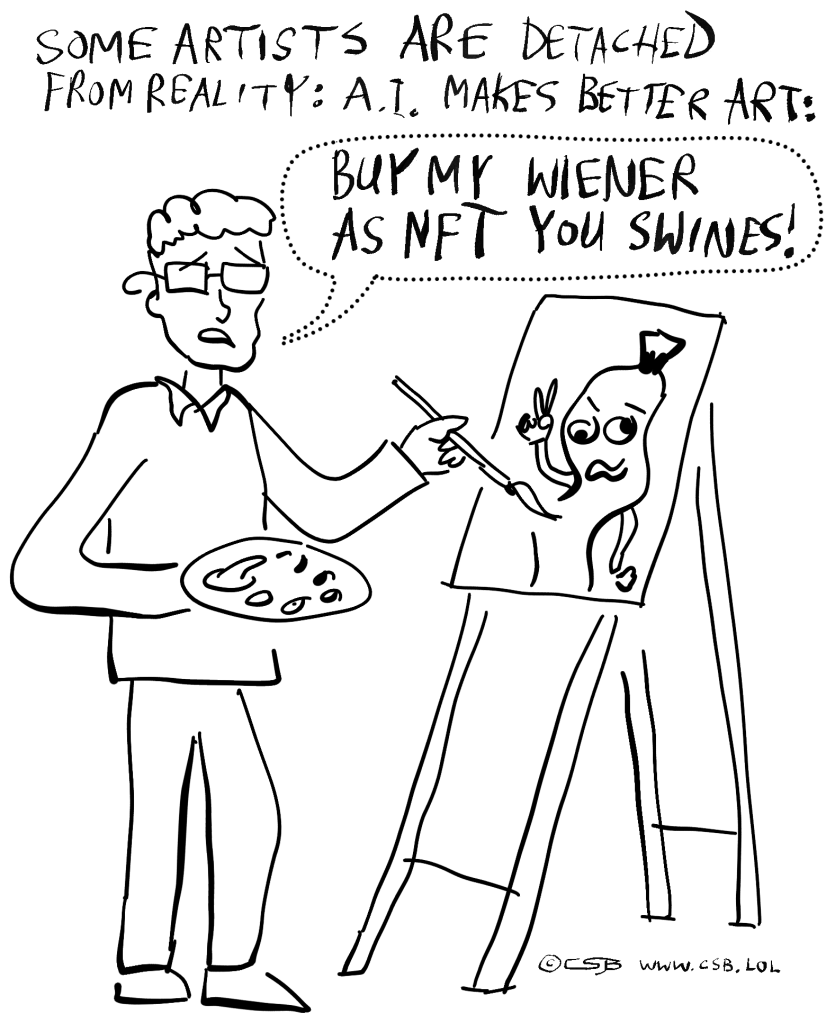 SOME ARTISTS ARE DETACHED
FROM REALITY: A.I. MAKES BETTER ART:
BUY MY WIENER
AS NFT YOU SWINES!
©CSB WWW.CSB.LOL